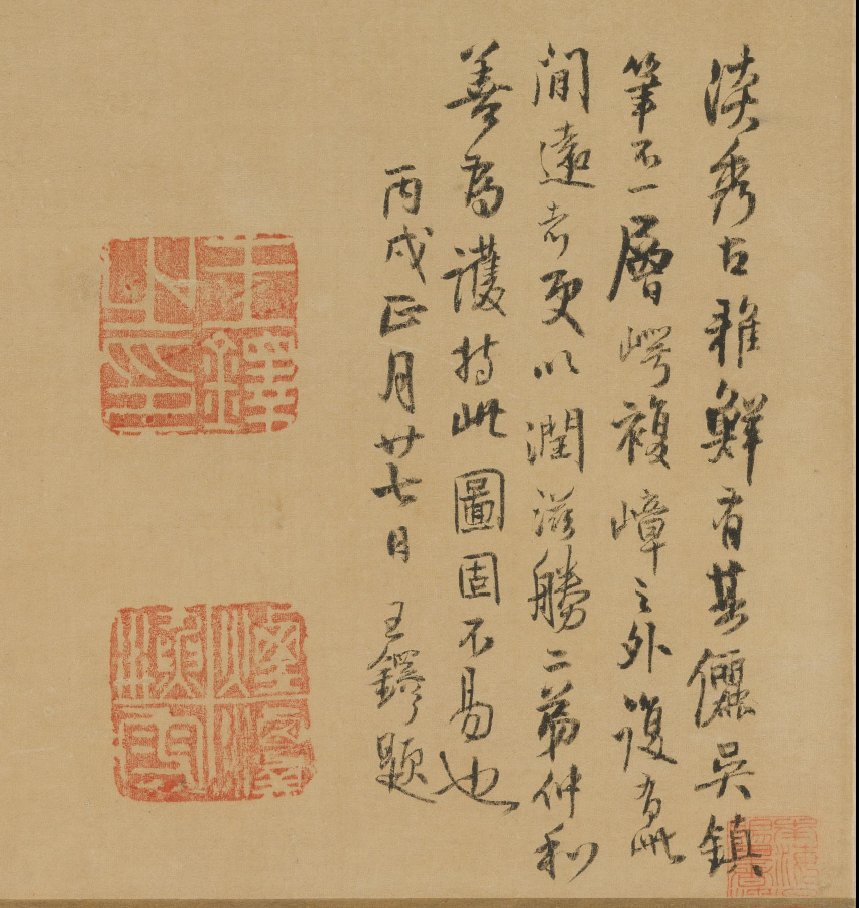 淡秀古雅鮮有其儷吳鎮
筆不一層崿複嶂之外復有此
閒遠者更以潤滋勝二弟仲和
善為護持此圖固不易也
丙戌正月廿七日王鐸題
王鐸之印
煙潭漁叟